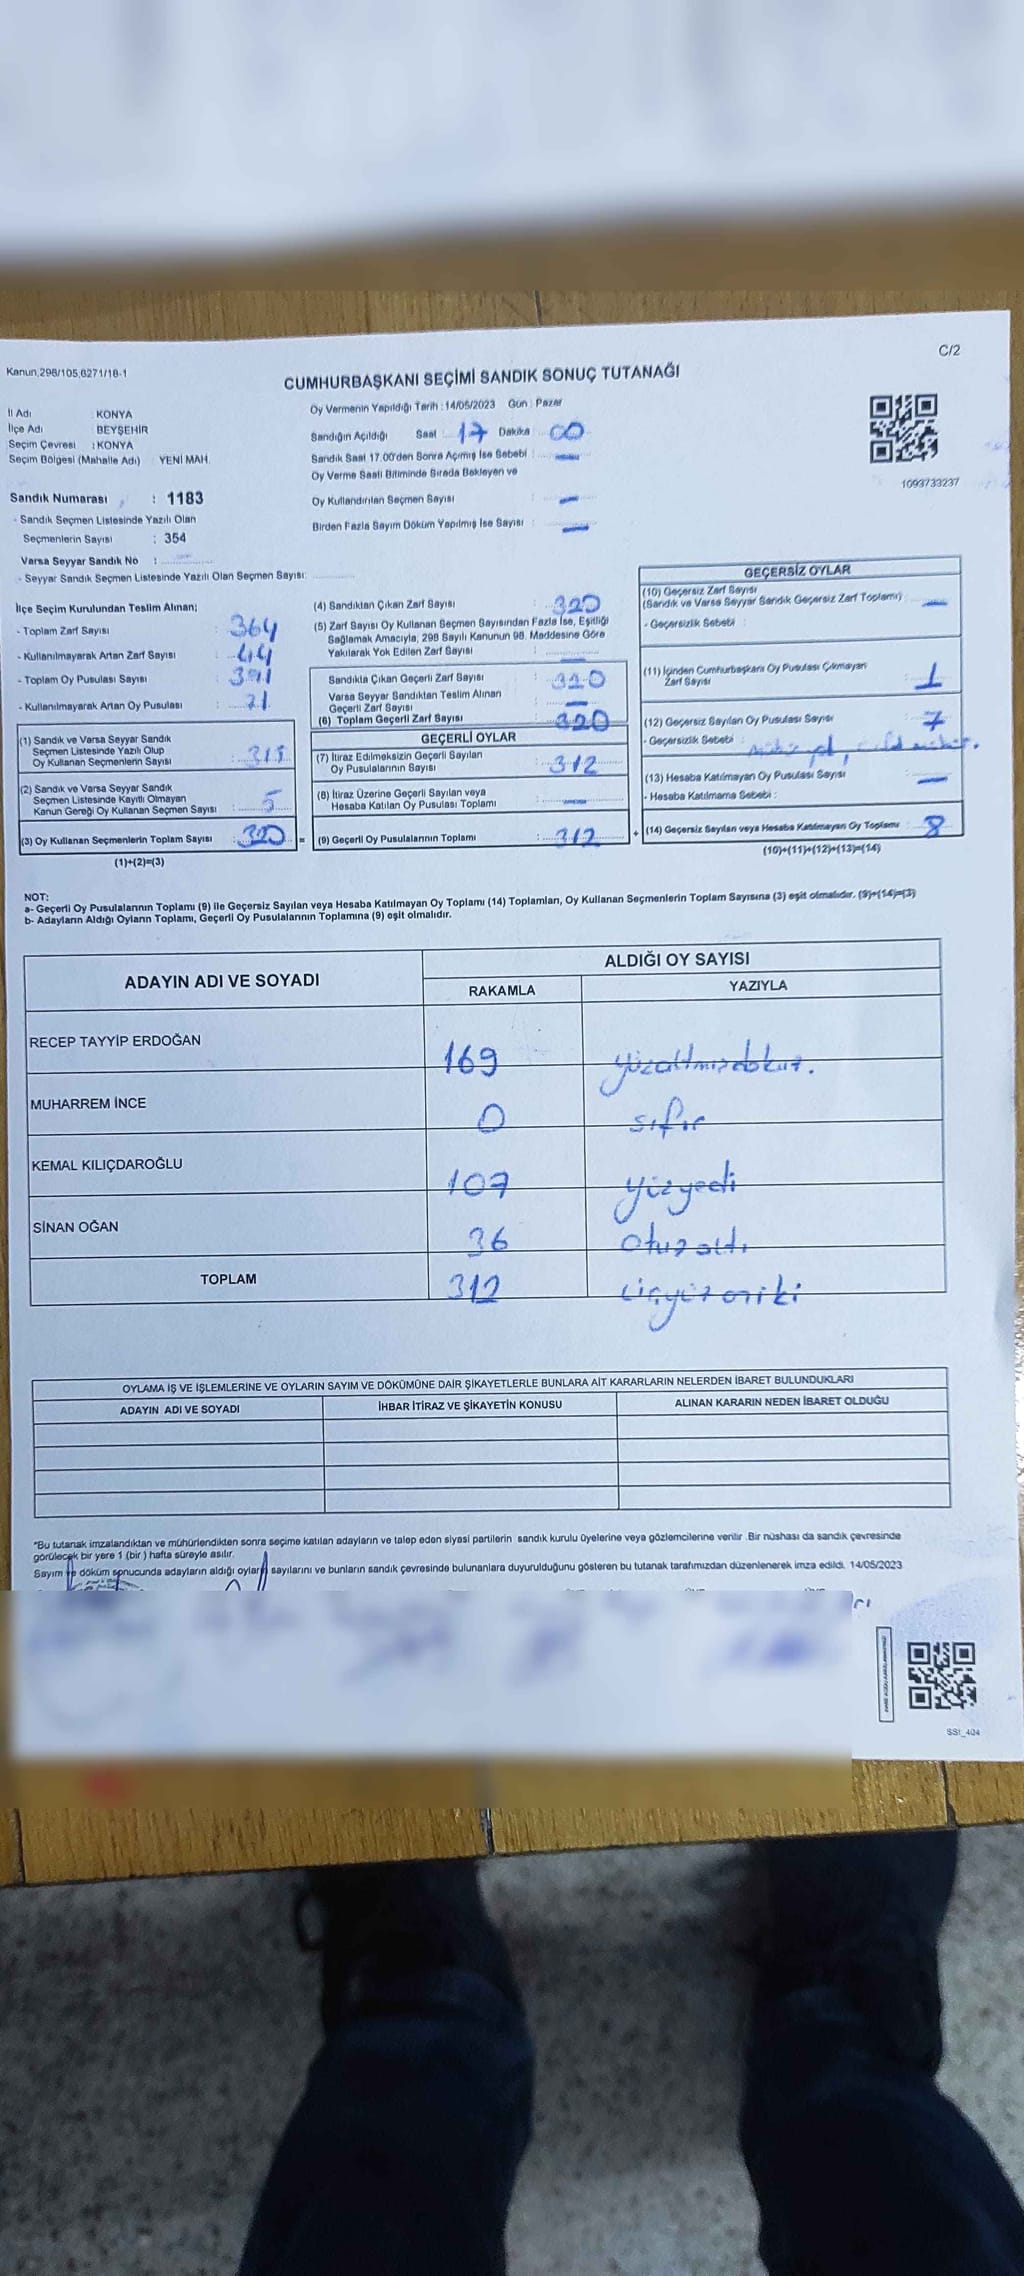 C/2
Kanun,298/105,6271/18-1
CUMHURBAŞKANI SEÇİMİ SANDIK SONUÇ TUTANAĞI
İl Adı : KONYA
İlçe Adı : BEYŞEHİR
Seçim Çevresi : KONYA
Seçim Bölgesi (Mahalle Adı) YENİ MAH.
Oy Vermenin Yapıldığı Tarih : 14/05/2023 Gün : Pazar
Sandığın Açıldığı Saat : 17 Dakika : 00
Sandık Saat 17.00'den Sonra Açımış İse Sebebi : —
Oy Verme Saati Bitiminde Sırada Bekleyen ve
Oy Kullandırılan Seçmen Sayısı : —
Birden Fazla Sayım Döküm Yapılmış İse Sayısı : —
1093733237
Sandık Numarası : 1183
- Sandık Seçmen Listesinde Yazılı Olan
Seçmenlerin Sayısı : 354
Varsa Seyyar Sandık No :
- Seyyar Sandık Seçmen Listesinde Yazılı Olan Seçmen Sayısı:
İlçe Seçim Kurulundan Teslim Alınan;
- Toplam Zarf Sayısı : 364
- Kullanılmayarak Artan Zarf Sayısı : 44
- Toplam Oy Pusulası Sayısı : 391
- Kullanılmayarak Artan Oy Pusulası : 71
(1) Sandık ve Varsa Seyyar Sandık
Seçmen Listesinde Yazılı Olup
Oy Kullanan Seçmenlerin Sayısı : 315
(2) Sandık ve Varsa Seyyar Sandık
Seçmen Listesinde Kayıtlı Olmayan
Kanun Gereği Oy Kullanan Seçmen Sayısı : 5
(3) Oy Kullanan Seçmenlerin Toplam Sayısı : 320 =
(1)+(2)=(3)
(4) Sandıktan Çıkan Zarf Sayısı : 320
(5) Zarf Sayısı Oy Kullanan Seçmen Sayısından Fazla İse, Eşitliği
Sağlamak Amacıyla, 298 Sayılı Kanunun 98. Maddesine Göre
Yakılarak Yok Edilen Zarf Sayısı : —
Sandıkta Çıkan Geçerli Zarf Sayısı : 320
Varsa Seyyar Sandıktan Teslim Alınan
Geçerli Zarf Sayısı : —
(6) Toplam Geçerli Zarf Sayısı : 320
GEÇERLİ OYLAR
(7) İtiraz Edilmeksizin Geçerli Sayılan
Oy Pusulalarının Sayısı : 312
(8) İtiraz Üzerine Geçerli Sayılan veya
Hesaba Katılan Oy Pusulası Toplamı : —
(9) Geçerli Oy Pusulalarının Toplamı : 312 +
GEÇERSİZ OYLAR
(10) Geçersiz Zarf Sayısı
(Sandık ve Varsa Seyyar Sandık Geçersiz Zarf Toplamı) : —
- Geçersizlik Sebebi :
(11) İçinden Cumhurbaşkanı Oy Pusulası Çıkmayan
Zarf Sayısı : 1
(12) Geçersiz Sayılan Oy Pusulası Sayısı : 7
- Geçersizlik Sebebi :
(13) Hesaba Katılmayan Oy Pusulası Sayısı : —
- Hesaba Katılmama Sebebi :
(14) Geçersiz Sayılan veya Hesaba Katılmayan Oy Toplamı : 8
(10)+(11)+(12)+(13)=(14)
NOT:
a- Geçerli Oy Pusulalarının Toplamı (9) ile Geçersiz Sayılan veya Hesaba Katılmayan Oy Toplamı (14) Toplamları, Oy Kullanan Seçmenlerin Toplam Sayısına (3) eşit olmalıdır. (9)+(14)=(3)
b- Adayların Aldığı Oyların Toplamı, Geçerli Oy Pusulalarının Toplamına (9) eşit olmalıdır.
ADAYIN ADI VE SOYADI ALDIĞI OY SAYISI
RAKAMLA YAZIYLA
RECEP TAYYİP ERDOĞAN 169 yüzaltmışdokuz.
MUHARREM İNCE 0 sıfır
KEMAL KILIÇDAROĞLU 107 yüzyedi
SİNAN OĞAN 36 otuzaltı
TOPLAM 312 üçyüzoniki
OYLAMA İŞ VE İŞLEMLERİNE VE OYLARIN SAYIM VE DÖKÜMÜNE DAİR ŞİKAYETLERLE BUNLARA AİT KARARLARIN NELERDEN İBARET BULUNDUKLARI
ADAYIN ADI VE SOYADI İHBAR İTİRAZ VE ŞİKAYETİN KONUSU ALINAN KARARIN NEDEN İBARET OLDUĞU
*Bu tutanak imzalandıktan ve mühürlendikten sonra seçime katılan adayların ve talep eden siyasi partilerin sandık kurulu üyelerine veya gözlemcilerine verilir. Bir nüshası da sandık çevresinde
görülecek bir yere 1 (bir) hafta süreyle asılır.
Sayım ve döküm sonucunda adayların aldığı oyların sayılarını ve bunların sandık çevresinde bulunanlara duyurulduğunu gösteren bu tutanak tarafımızdan düzenlenerek imza edildi. 14/05/2023
SSI_404